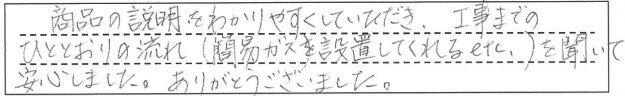 商品の説明をわかりやすくしていただき、工事までの
ひととおりの流れ(簡易ガスを設置してくれるetc,)を聞いて
安心しました。ありがとうございました。